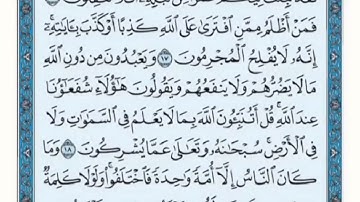 فَمَنْ أَظْلَمُ مِمَّنِ ٱفْتَرَىٰ عَلَى ٱللَّهِ كَذِبًا أَوْ كَذَّبَ بِـَٔايَـٰتِهِۦٓ ۚ
إِنَّهُۥ لَا يُفْلِحُ ٱلْمُجْرِمُونَ ١٧ وَيَعْبُدُونَ مِن دُونِ ٱللَّهِ
مَا لَا يَضُرُّهُمْ وَلَا يَنفَعُهُمْ وَيَقُولُونَ هَـٰٓؤُلَآءِ شُفَعَـٰٓؤُنَا
عِندَ ٱللَّهِ ۚ قُلْ أَتُنَبِّـُٔونَ ٱللَّهَ بِمَا لَا يَعْلَمُ فِى ٱلسَّمَـٰوَٰتِ وَلَا
فِى ٱلْأَرْضِ ۚ سُبْحَـٰنَهُۥ وَتَعَـٰلَىٰ عَمَّا يُشْرِكُونَ ١٨ وَمَا
كَانَ ٱلنَّاسُ إِلَّآ أُمَّةً وَٰحِدَةً فَٱخْتَلَفُوا۟ ۚ وَلَوْلَا كَلِمَةٌ